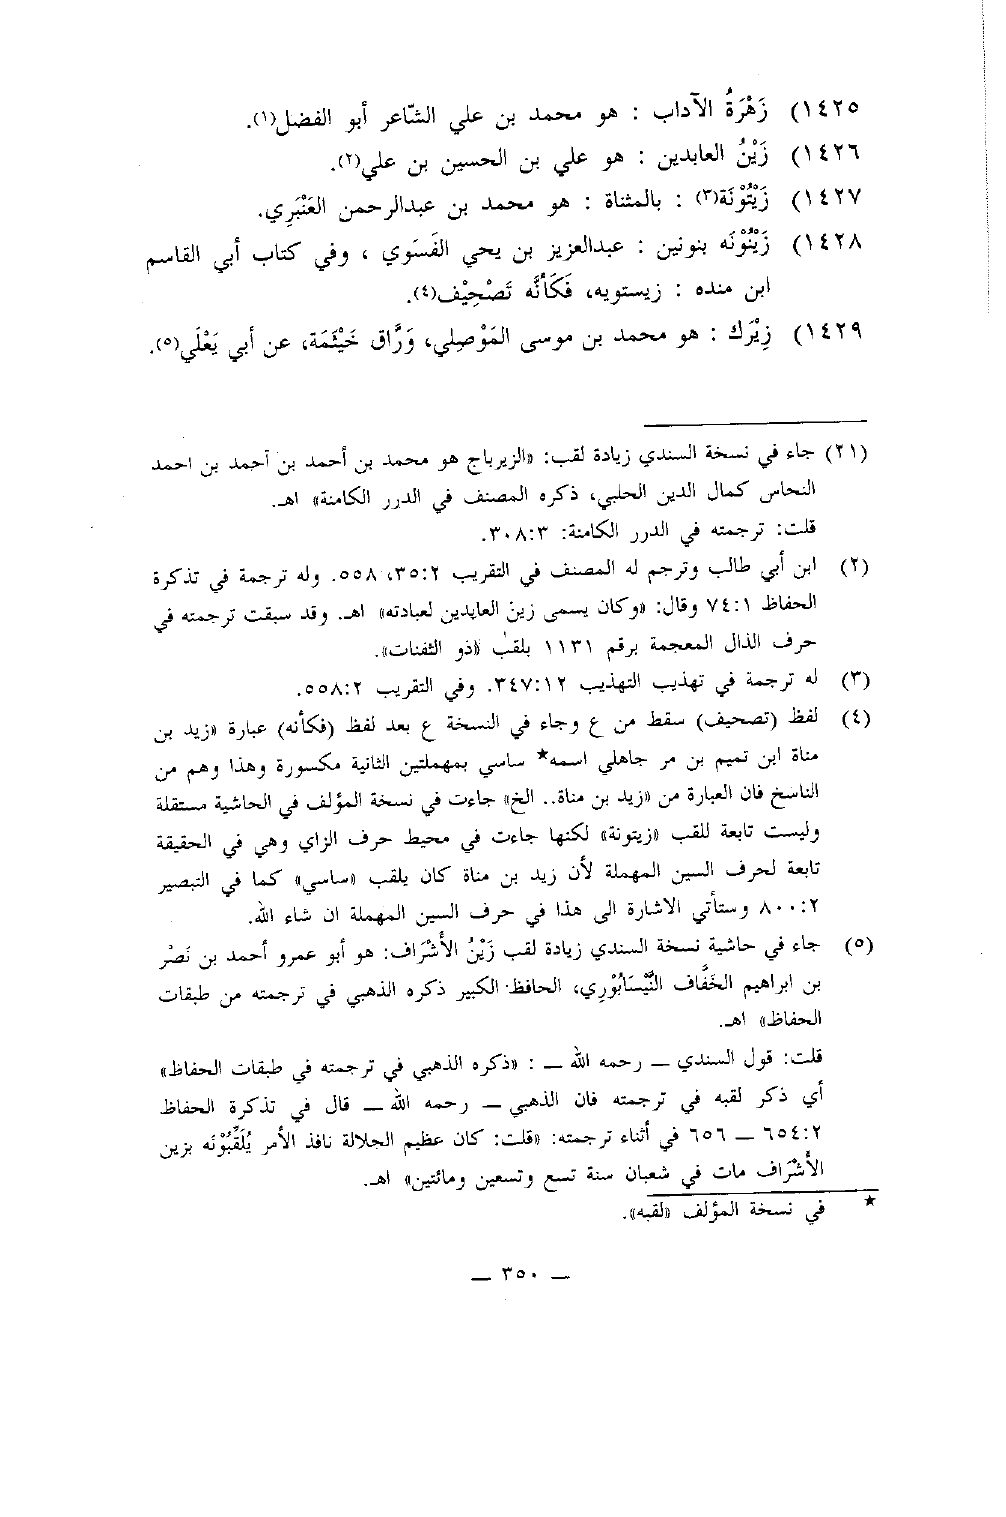 ١٤٢٥) زَهْرَةُ الآداب : هو محمد بن علي الشّاعر أبو الفضل(١).
١٤٢٦) زَيْنُ العابدين : هو علي بن الحسين بن علي(٢).
١٤٢٧) زَيْتُوْنَة(٣) : بالمثناة : هو محمد بن عبدالرحمن العَنْبَرِي.
١٤٢٨) زَنُوْنَه بنونين : عبدالعزيز بن يحي الفَسَوي ، وفي كتاب أبي القاسم
ابن منده : زيستويه، فَكَأنَّه تَصْحِيْف(٤).
١٤٢٩) زِيْرَك : هو محمد بن موسى المَوْصِلي، وَرَّاق خَيْثَمَة، عن أبي يَعْلَي(٥).
(٢١) جاء في نسخة السندي زيادة لقب: «الزيرباج هو محمد بن أحمد بن آحمد بن احمد
النحاس كمال الدين الحلبي، ذكره المصنف في الدرر الكامنة» اهـ.
قلت: ترجمته في الدرر الكامنة: ٣٠٨:٣.
(٢) ابن أبي طالب وترجم له المصنف في التقريب ٣٥:٢، ٥٥٨. وله ترجمة في تذكرة
الحفاظ ٧٤:١ وقال: «وكان يسمى زين العابدين لعبادته» اهـ. وقد سبقت ترجمته في
حرف الذال المعجمة برقم ١١٣١ بلقب «ذو الثفنات».
(٣) له ترجمة في تهذيب التهذيب ٣٤٧:١٢. وفي التقريب ٥٥٨:٢.
(٤) لفظ (تصحيف) سقط من ع وجاء في النسخة ع بعد لفظ (فكأنه) عبارة «زيد بن
مناة ابن تميم بن مر جاهلي اسمه★ ساسي بمهملتين الثانية مكسورة وهذا وهم من
الناسخ فان العبارة من «زيد بن مناة.. الخ» جاءت في نسخة المؤلف في الحاشية مستقلة
وليست تابعة للقب «زيتونة» لكنها جاءت في محيط حرف الزاي وهي في الحقيقة
تابعة لحرف السين المهملة لأن زيد بن مناة كان يلقب «ساسي» كما في التبصير
٨٠٠:٢ وستأتي الاشارة الى هذا في حرف السين المهملة ان شاء الله.
(٥) جاء في حاشية نسخة السندي زيادة لقب زَيْنُ الأَشْرَاف: هو أبو عمرو أحمد بن نَصْر
بن ابراهيم الخَفَّاف النَّيْسَابُوْرِي، الحافظ الكبير ذكره الذهبي في ترجمته من طبقات
الحفاظ» اهـ.
قلت: قول السندي ـ رحمه الله ـ : «ذكره الذهبي في ترجمته في طبقات الحفاظ»
أي ذكر لقبه في ترجمته فان الذهبي ـ رحمه الله ـ قال في تذكرة الحفاظ
٦٥٤:٢ ـ ٦٥٦ في أثناء ترجمته: «قلت: كان عظيم الجلالة نافذ الأمر يُلَقِّبُوْنَه بزين
الأَشْرَاف مات في شعبان سنة تسع وتسعين ومائتين» اهـ.
★ في نسخة المؤلف «لقبه».
ـ ٣٥٠ ـ